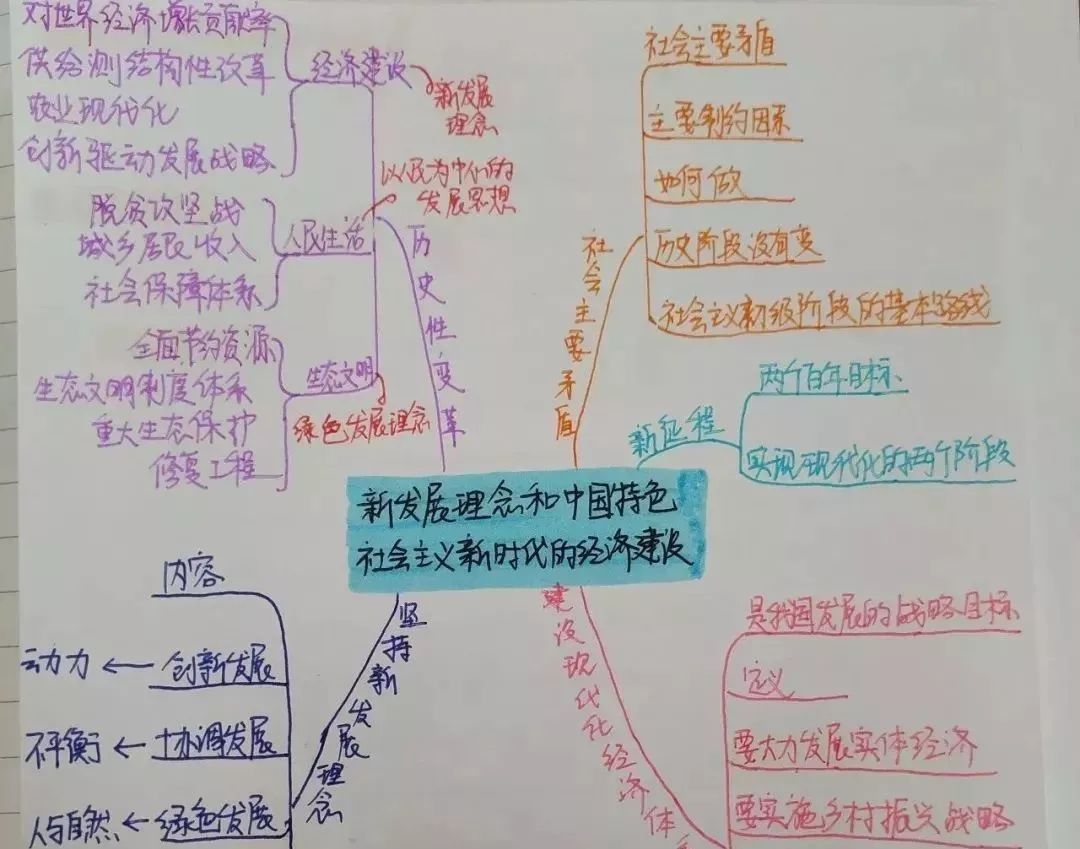 对世界经济增长贡献率
供给测结构性改革
农业现代化
创新驱动发展战略
经济建设
新发展
理念
脱贫攻坚战
城乡居民收入
社会保障体系
人民生活
以人民为中心的
发展思想
全面节约资源
生态文明制度体系
重大生态保护
修复工程
生态文明
绿色发展理念
历史性变革
社会主要矛盾
主要制约因素
如何做
历史阶段没有变
社会主义初级阶段的基本路线
社会主要矛盾
新征程
两个百年目标
实现现代化的两个阶段
新发展理念和中国特色
社会主义新时代的经济建设
坚持新发展理念
内容
创新发展
动力
协调发展
不平衡
绿色发展
人与自然
建设现代化经济体
是我国发展的战略目标
定义
要大力发展实体经济
要实施乡村振兴战略